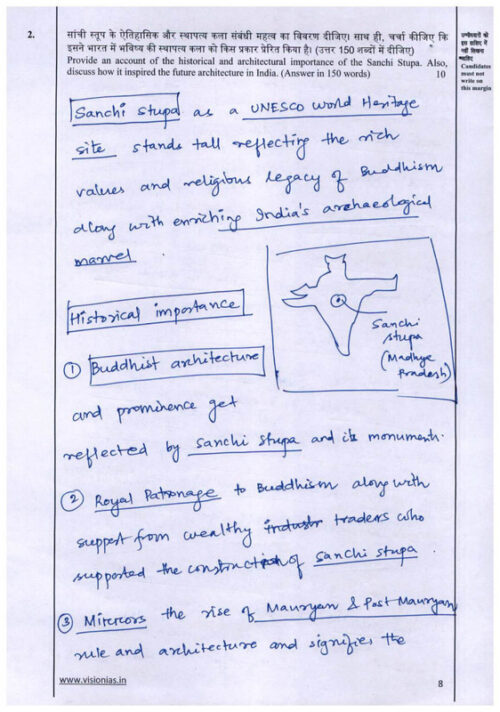 2. सांची स्तूप के ऐतिहासिक और स्थापत्य कला संबंधी महत्व का विवरण दीजिए। साथ ही, चर्चा कीजिए कि
इसने भारत में भविष्य की स्थापत्य कला को किस प्रकार प्रेरित किया है। (उत्तर 150 शब्दों में दीजिए)
Provide an account of the historical and architectural importance of the Sanchi Stupa. Also,
discuss how it inspired the future architecture in India. (Answer in 150 words) 10
उम्मीदवारों को
इस हाशिए में
नहीं लिखना
चाहिए
Candidates
must not
write on
this margin
Sanchi Stupa as a UNESCO World Heritage
site stands tall reflecting the rich
values and religious legacy of Buddhism
along with enriching India's archaeological
marvel
Sanchi
stupa
(Madhya
Pradesh)
Historical importance
① Buddhist architecture
and prominence get
reflected by Sanchi Stupa and its monument.
② Royal Patronage to Buddhism along with
support from wealthy traders who
supported the construction of Sanchi stupa
③ Mirrors the rise of Mauryan & Post Mauryan
rule and architecture and signifies the
www.visionias.in
8